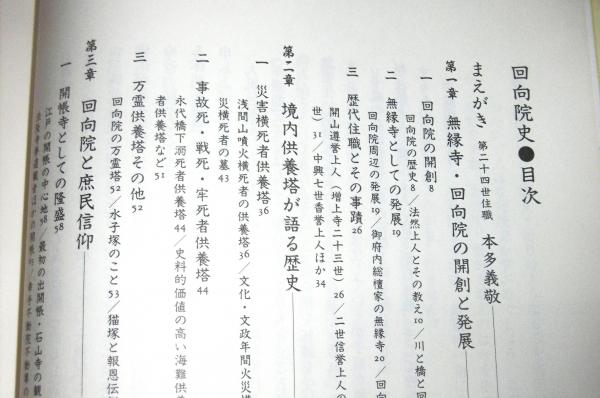 回向院史●目次
まえがき 第二十四世住職 本多義敬
第一章 無縁寺・回向院の開創と発展
一 回向院の開創8
回向院の歴史8／法然上人とその教え10／川と橋と回
二 無縁寺としての発展19
回向院周辺の発展19／御府内総檀家の無縁寺20／回向
三 歴代住職とその事蹟26
開山遵誉上人（増上寺二十三世）26／二世信誉上人の
世）31／中興七世香誉上人ほか34
第二章 境内供養塔が語る歴史
一 災害横死者供養塔36
浅間山噴火横死者の供養塔36／文化・文政年間火災横
災横死者の墓43
二 事故死・戦死・牢死者供養塔44
永代橋下溺死者供養塔44／史料的価値の高い海難供養
者供養塔など51
三 万霊供養塔その他52
回向院の万霊塔52／水子塚のこと53／猫塚と報恩伝
第三章 回向院と庶民信仰
一 開帳寺としての隆盛58
江戸の開帳の中心地58／最初の出開帳・石山寺の観